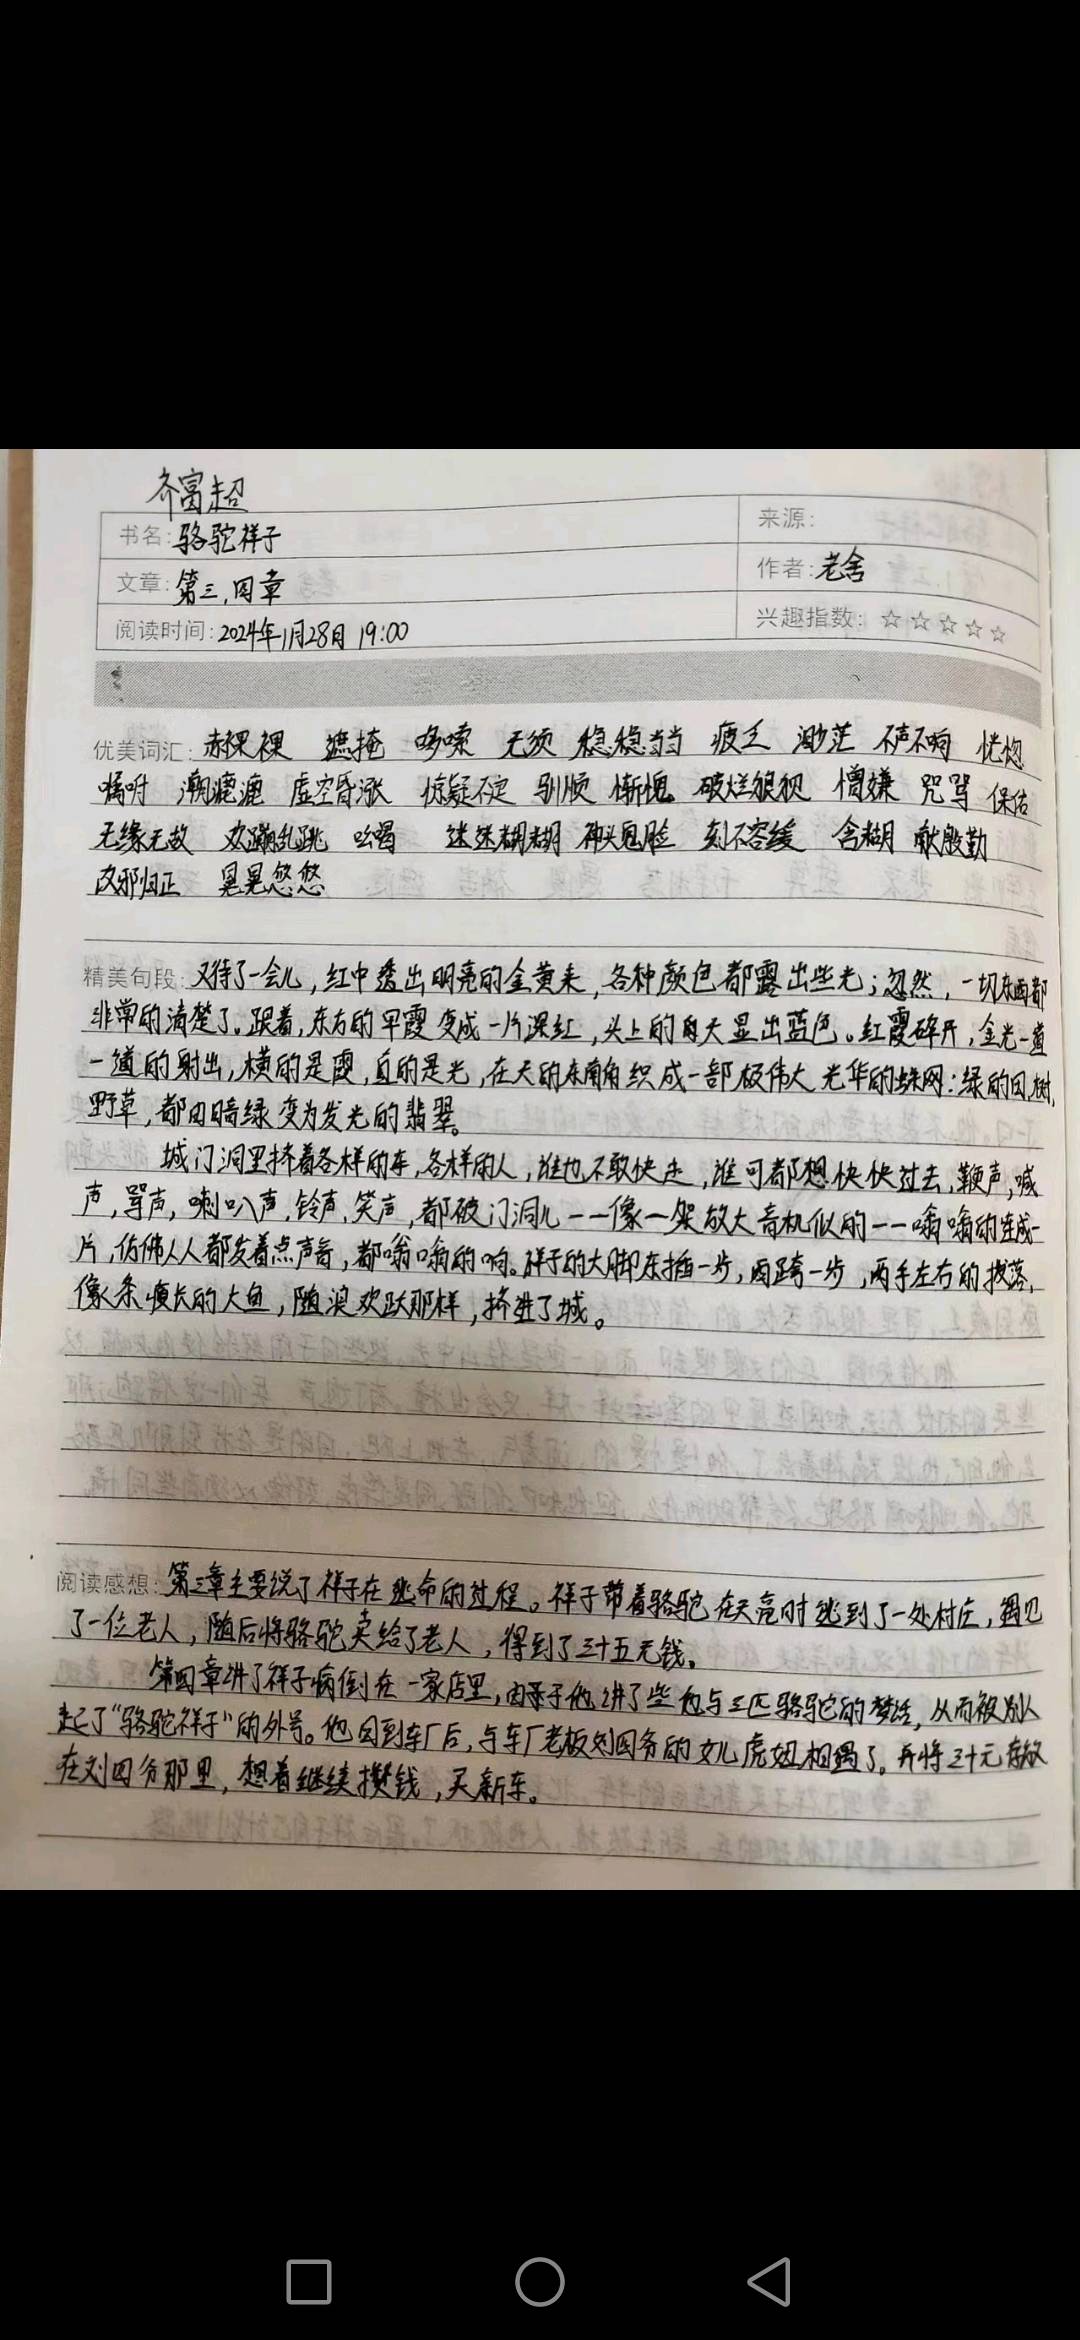 齐富超
书名: 骆驼祥子
来源:
文章: 第三,四章
作者: 老舍
阅读时间: 2024年1月28日 19:00
兴趣指数: ☆☆☆☆☆
优美词汇: 赤裸裸 遮掩 哆嗦 无须 稳稳当当 疲乏 渺茫 不声不响 恍惚
嘱咐 潮漉漉 虚空昏涨 惊疑不定 驯顺 惭愧 破烂狼狈 憎嫌 咒骂 保佑
无缘无故 欢蹦乱跳 吆喝 迷迷糊糊 神头鬼脸 刻不容缓 含糊 献殷勤
改邪归正 晃晃悠悠
精美句段: 又待了一会儿,红中透出明亮的金黄来,各种颜色都露出些光;忽然,一切东西都
非常的清楚了。跟着,东方的早霞变成一片深红,头上的天显出蓝色。红霞碎开,金光一道
一道的射出,横的是霞,直的是光,在天的东南角织成一部极伟大光华的蛛网:绿的田,树,
野草,都由暗绿变为发光的翡翠。
城门洞里挤着各样的车,各样的人,谁也不敢快走,谁可都想快快过去,鞭声,喊
声,骂声,喇叭声,铃声,笑声,都被门洞儿——像一架放大音机似的——嗡嗡的连成一
片,仿佛人人都发着点声音,都嗡嗡的响。祥子的大脚东插一步,西跨一步,两手左右的拨落,
像条瘦长的大鱼,随浪欢跃那样,挤进了城。
阅读感想: 第三章主要说了祥子在逃命的过程。祥子带着骆驼在天亮时逃到了一处村庄,遇见
了一位老人,随后将骆驼卖给了老人,得到了三十五元钱。
第四章讲了祥子病倒在一家店里,由于他讲了些他与三匹骆驼的梦话,从而被别人
起了"骆驼祥子"的外号。他回到车厂后,与车厂老板刘四爷的女儿虎妞相遇了。并将三十元存放
在刘四爷那里,想着继续攒钱,买新车。